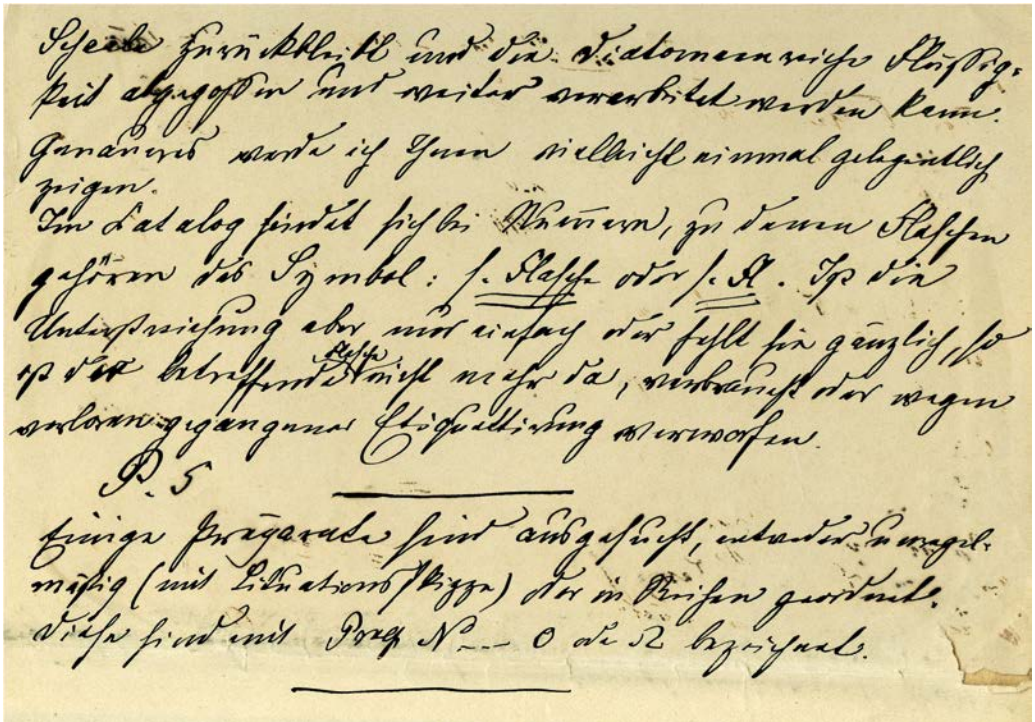 Scheibe zurückbleibt und die diatomeenreiche Flüssig=
keit abgegossen und weiter verarbeitet werden kann.
Genaueres werde ich Ihnen vielleicht einmal gelegentlich
zeigen.
Im Catalog findet sich bei Nummern, zu denen Flaschen
gehören das Symbol: s. Flasche oder s. Fl. Ist die
Unterstreichung aber nur einfach oder fehlt sie gänzlich, so
ist die betreffende Flasche nicht mehr da, verbraucht oder wegen
verloren gegangener Etiquettirung verworfen.
P. S
Einige Präparate sind ausgesucht, entweder unregel=
mäßig (mit Situationsskizze) oder in Reihen geordnet.
Diese sind mit Präp No -- O od Ω bezeichnet.